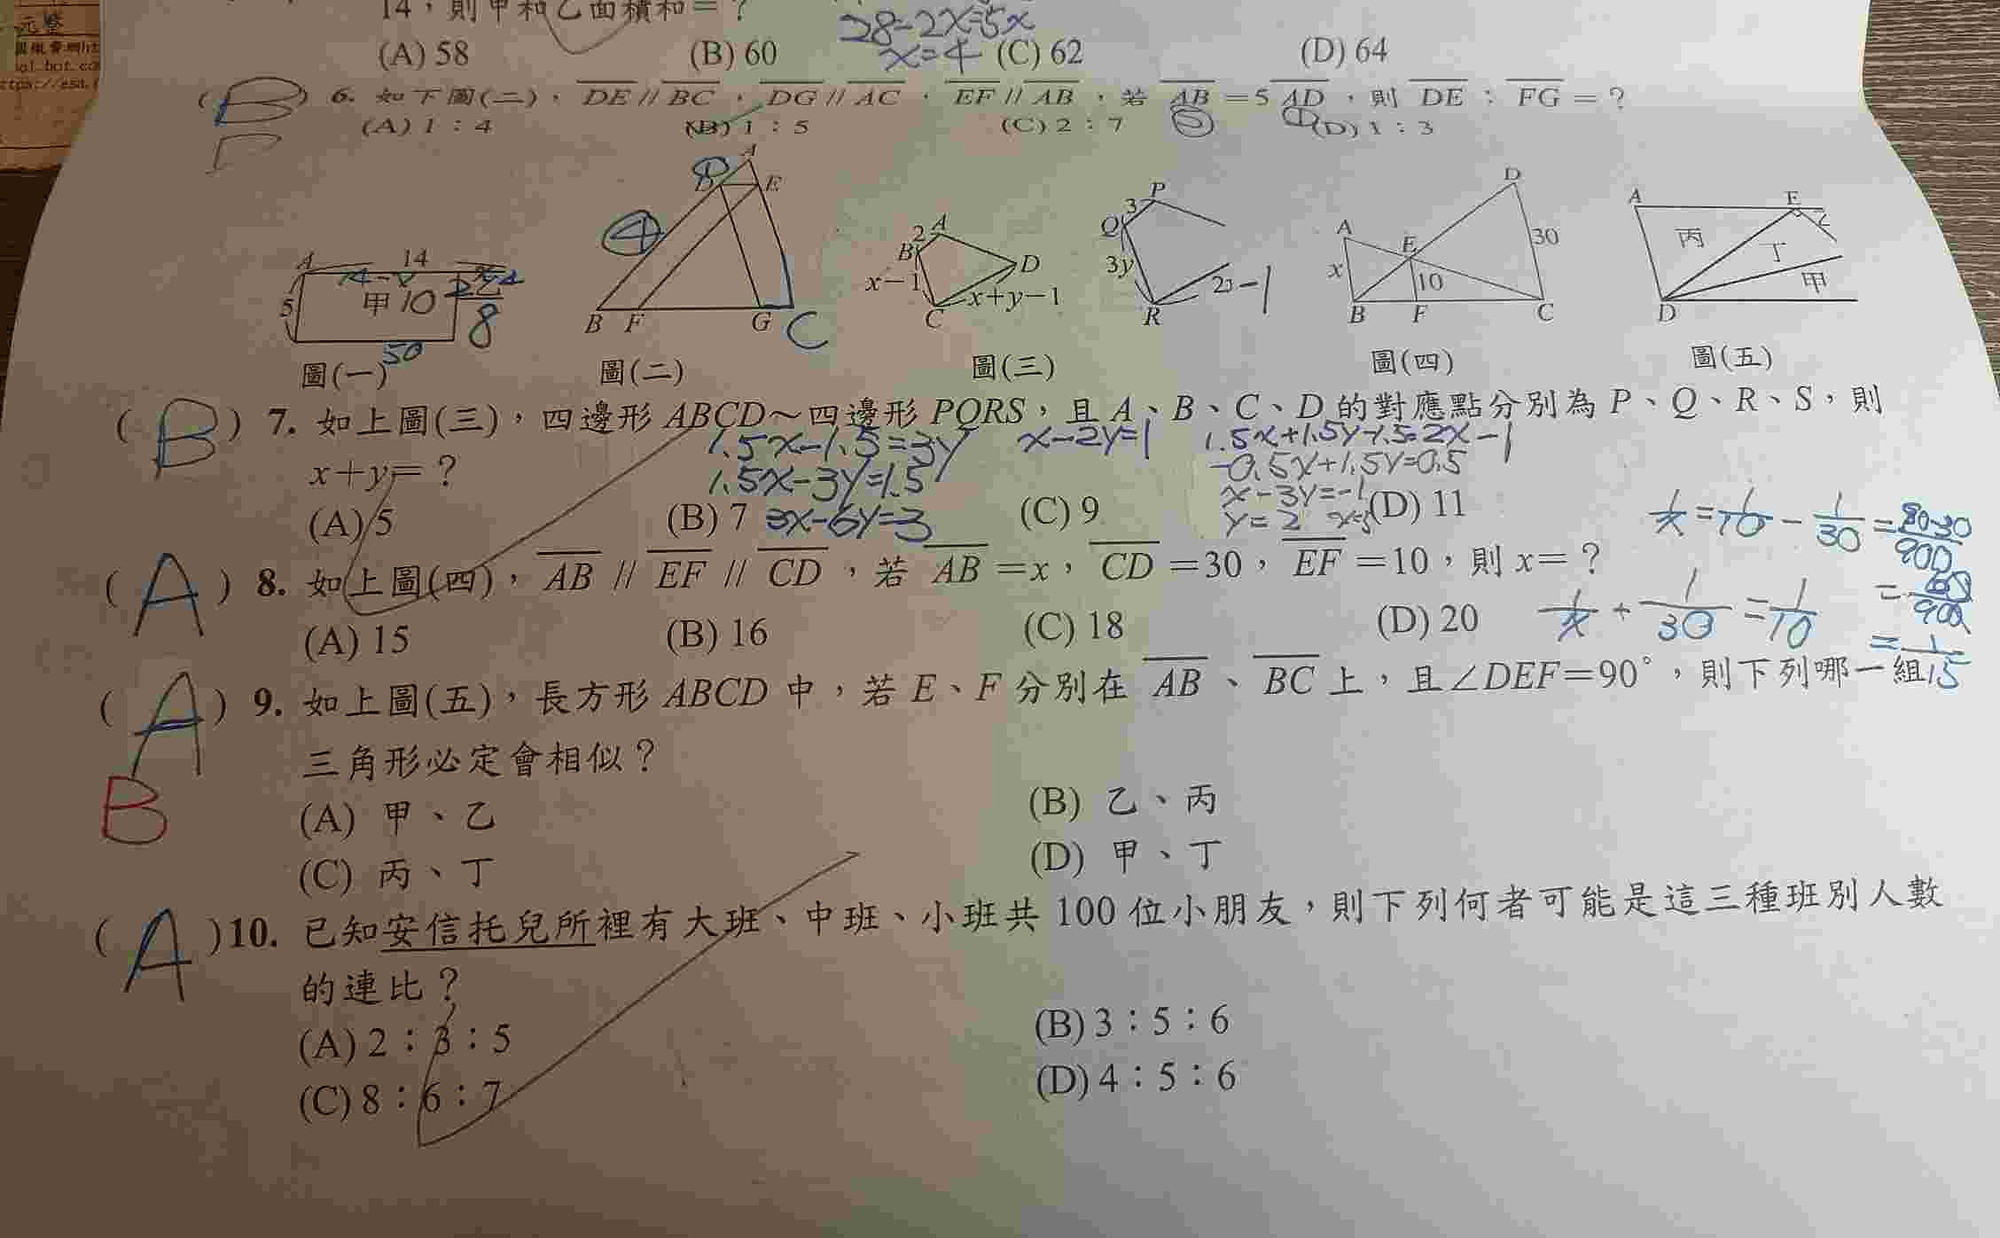 元整
14，則甲和乙面積和＝？
28-2x=5x
x=4
(A) 58 (B) 60 (C) 62 (D) 64
( B ) 6. 如下圖(二)，DE // BC，DG // AC，EF // AB，若 AB =5 AD，則 DE：FG =？
(A) 1：4 (B) 1：5 (C) 2：7 (D) 1：3
5 1
A 14 5 甲 10 8 50
A D E 4 B F G C
A 2 B D x-1 C x+y-1
P 3 Q 3y R -1
D A E 30 x 10 B F C
A E 丙 丁 甲 D
圖(一) 圖(二) 圖(三) 圖(四) 圖(五)
( B ) 7. 如上圖(三)，四邊形 ABCD～四邊形 PQRS，且 A、B、C、D 的對應點分別為 P、Q、R、S，則
1.5x-1.5=3y x-2y=1 1.5x+1.5y-1.5=2x-1
x+y=？ 1.5x-3y=1.5 -0.5x+1.5y=0.5
x-3y=-1
(A) 5 (B) 7 3x-6y=3 (C) 9 y=2 x=5 (D) 11
1/x = 1/10 - 1/30 =
( A ) 8. 如上圖(四)，AB // EF // CD，若 AB =x，CD =30，EF =10，則 x=？
(A) 15 (B) 16 (C) 18 (D) 20 1/x + 1/30 = 1/10
= 1/15
( A ) 9. 如上圖(五)，長方形 ABCD 中，若 E、F 分別在 AB、BC 上，且∠DEF=90°，則下列哪一組
三角形必定會相似？
B
(A) 甲、乙 (B) 乙、丙
(C) 丙、丁 (D) 甲、丁
( A )10. 已知安信托兒所裡有大班、中班、小班共 100 位小朋友，則下列何者可能是這三種班別人數
的連比？
(A) 2：3：5 (B) 3：5：6
(C) 8：6：7 (D) 4：5：6